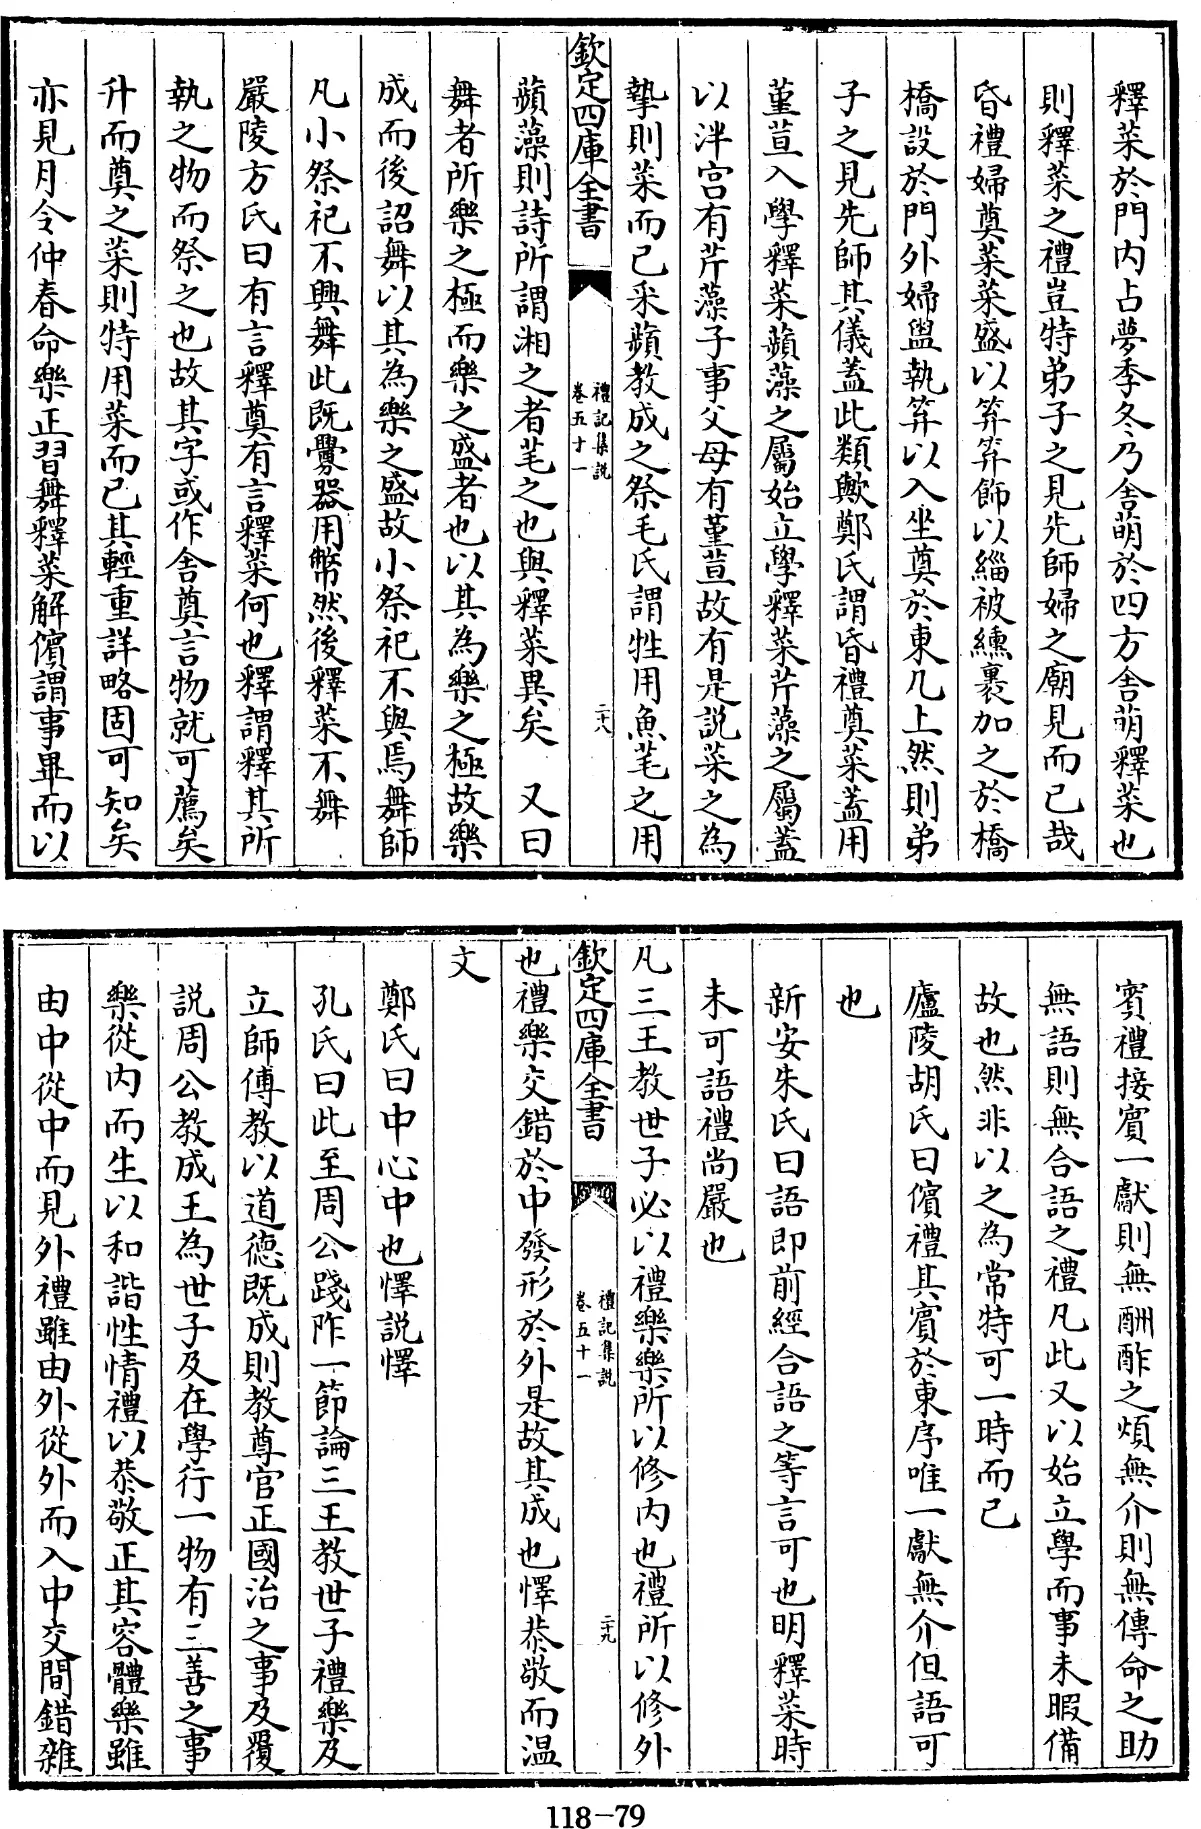 釋菜於門内占夢季冬乃舍萌於四方舍萌釋菜也
則釋菜之禮豈特弟子之見先師婦之廟見而已哉
昏禮婦奠菜菜盛以笲笲飾以緇被纁裏加之於橋
橋設於門外婦盥執笲以入坐奠於東几上然則弟
子之見先師其儀蓋此類歟鄭氏謂昏禮奠菜蓋用
菫荁入學釋菜蘋藻之屬始立學釋菜芹藻之屬蓋
以泮宫有芹藻子事父母有菫荁故有是説菜之為
摯則菜而已采蘋教成之祭毛氏謂牲用魚芼之用
欽定四庫全書
禮記集説
卷五十一
二十八
蘋藻則詩所謂湘之者芼之也與釋菜異矣 又曰
舞者所樂之極而樂之盛者也以其為樂之極故樂
成而後詔舞以其為樂之盛故小祭祀不與焉舞師
凡小祭祀不興舞此既釁器用幣然後釋菜不舞
嚴陵方氏曰有言釋奠有言釋菜何也釋謂釋其所
執之物而祭之也故其字或作舍奠言物就可薦矣
升而奠之菜則特用菜而已其輕重詳略固可知矣
亦見月令仲春命樂正習舞釋菜解儐謂事畢而以
賓禮接賓一獻則無酬酢之煩無介則無傳命之助
無語則無合語之禮凡此又以始立學而事未暇備
故也然非以之為常特可一時而已
廬陵胡氏曰儐禮其賓於東序唯一獻無介但語可
也
新安朱氏曰語即前經合語之等言可也明釋菜時
未可語禮尚嚴也
凡三王教世子必以禮樂樂所以修内也禮所以修外
欽定四庫全書
禮記集説
卷五十一
二十九
也禮樂交錯於中發形於外是故其成也懌恭敬而温
文
鄭氏曰中心中也懌説懌
孔氏曰此至周公踐阼一節論三王教世子禮樂及
立師傅教以道德既成則教尊官正國治之事及覆
説周公教成王為世子及在學行一物有三善之事
樂從内而生以和諧性情禮以恭敬正其容體樂雖
由中從中而見外禮雖由外從外而入中交間錯雜
118-79